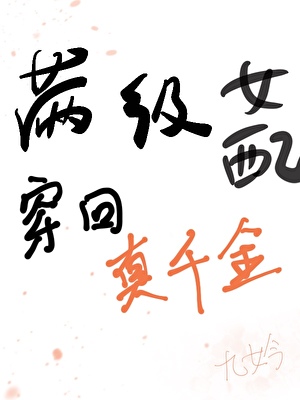 满级女配
穿回
真千金
九妗